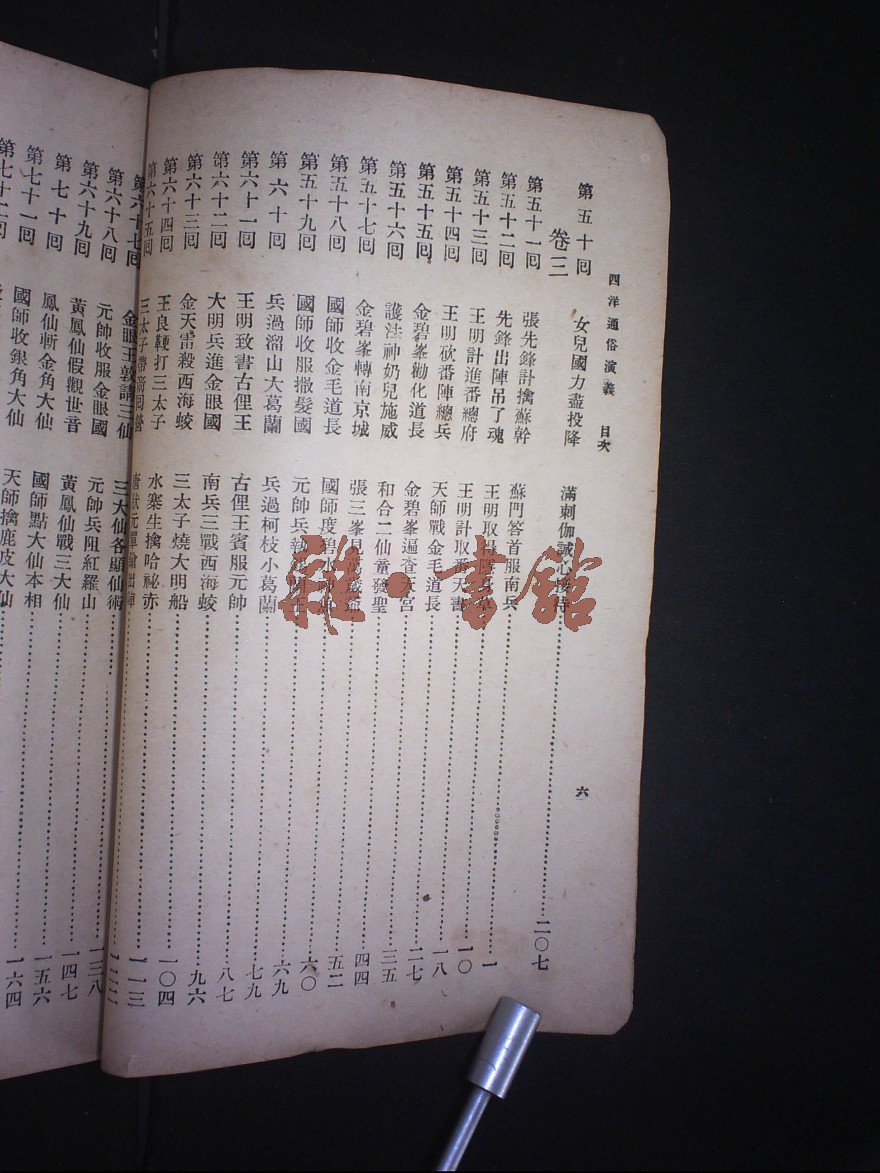 西洋通俗演義 目次 六
第五十回 女兒國力盡投降 滿刺伽誠心接待 二〇七
卷三
第五十一回 張先鋒計擒蘇幹 蘇門答首服南兵 一
第五十二回 先鋒出陣吊了魂 王明取得
第五十三回 王明計進番總府 王明計取番天書 一〇
第五十四回 王明砍番陣總兵 天師戰金毛道長 一八
第五十五回 金碧峯勸化道長 金碧峯遍查天宮 二七
第五十六回 護法神奶兒施威 和合二仙童發聖 三五
第五十七回 金碧峯轉南京城 張三峯見萬歲爺 四四
第五十八回 國師收金毛道長 國師度碧水神魚 五二
第五十九回 國師收服撒髮國 元帥兵執 六〇
第六十回 兵過溜山大葛蘭 兵過柯枝小葛蘭 六九
第六十一回 王明致書古俚王 古俚王賓服元帥 七九
第六十二回 大明兵進金眼國 南兵三戰西海蛟 八七
第六十三回 金天雷殺西海蛟 三太子燒大明船 九六
第六十四回 王良鞭打三太子 水寨生擒哈祕赤 一〇四
第六十五回 三太子帶箭回營 唐狀元單槍出陣 一一三
第六十七回 金眼王敦請三仙 三大仙各顯仙術
第六十八回 元帥收服金眼國 元帥兵阻紅羅山 一三八
第六十九回 黃鳳仙假觀世音 黃鳳仙戰三大仙 一四七
第七十回 鳳仙斬金角大仙 國師點大仙本相 一五六
第七十一回 國師收銀角大仙 天師擒鹿皮大仙 一六四
第七十二回
雜·書館